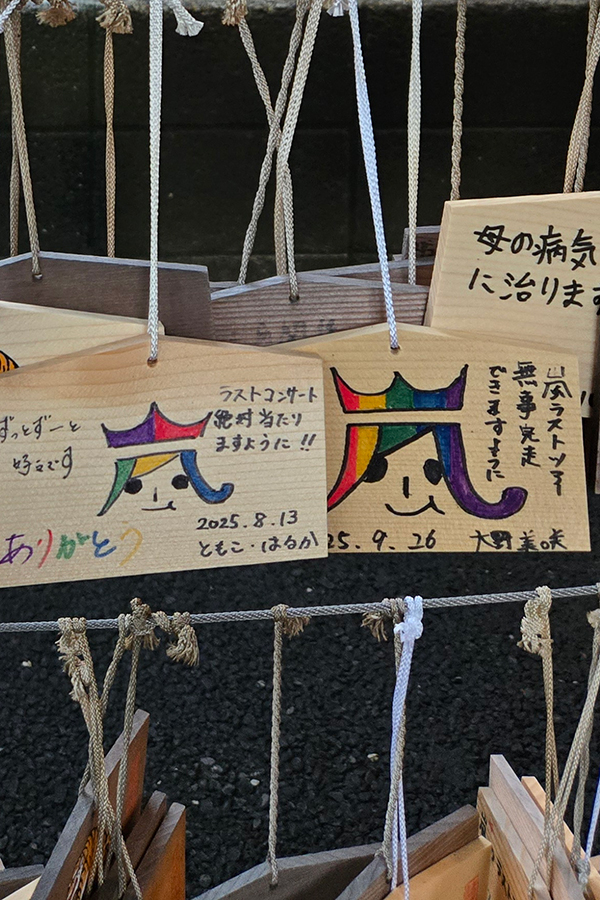 ずっとずーっと
好きです
ありがとう
ラストコンサート
絶対当たり
ますように!!
2025.8.13
ともこ・はるか
嵐ラストツアー
無事完走
できますように
25.9.26
大野美咲
母の病気
に治ります